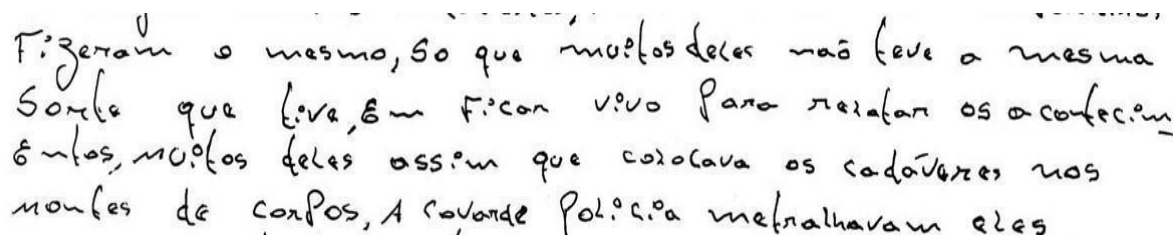 Fizeram o mesmo, So que muitos deles naõ teve a mesma
Sorte que tive, Em Ficar vivo Para relatar os acontecim
Entos, muitos deles assim que colocava os cadáveres nos
montes de corpos, A covarde Policia metralhavam eles